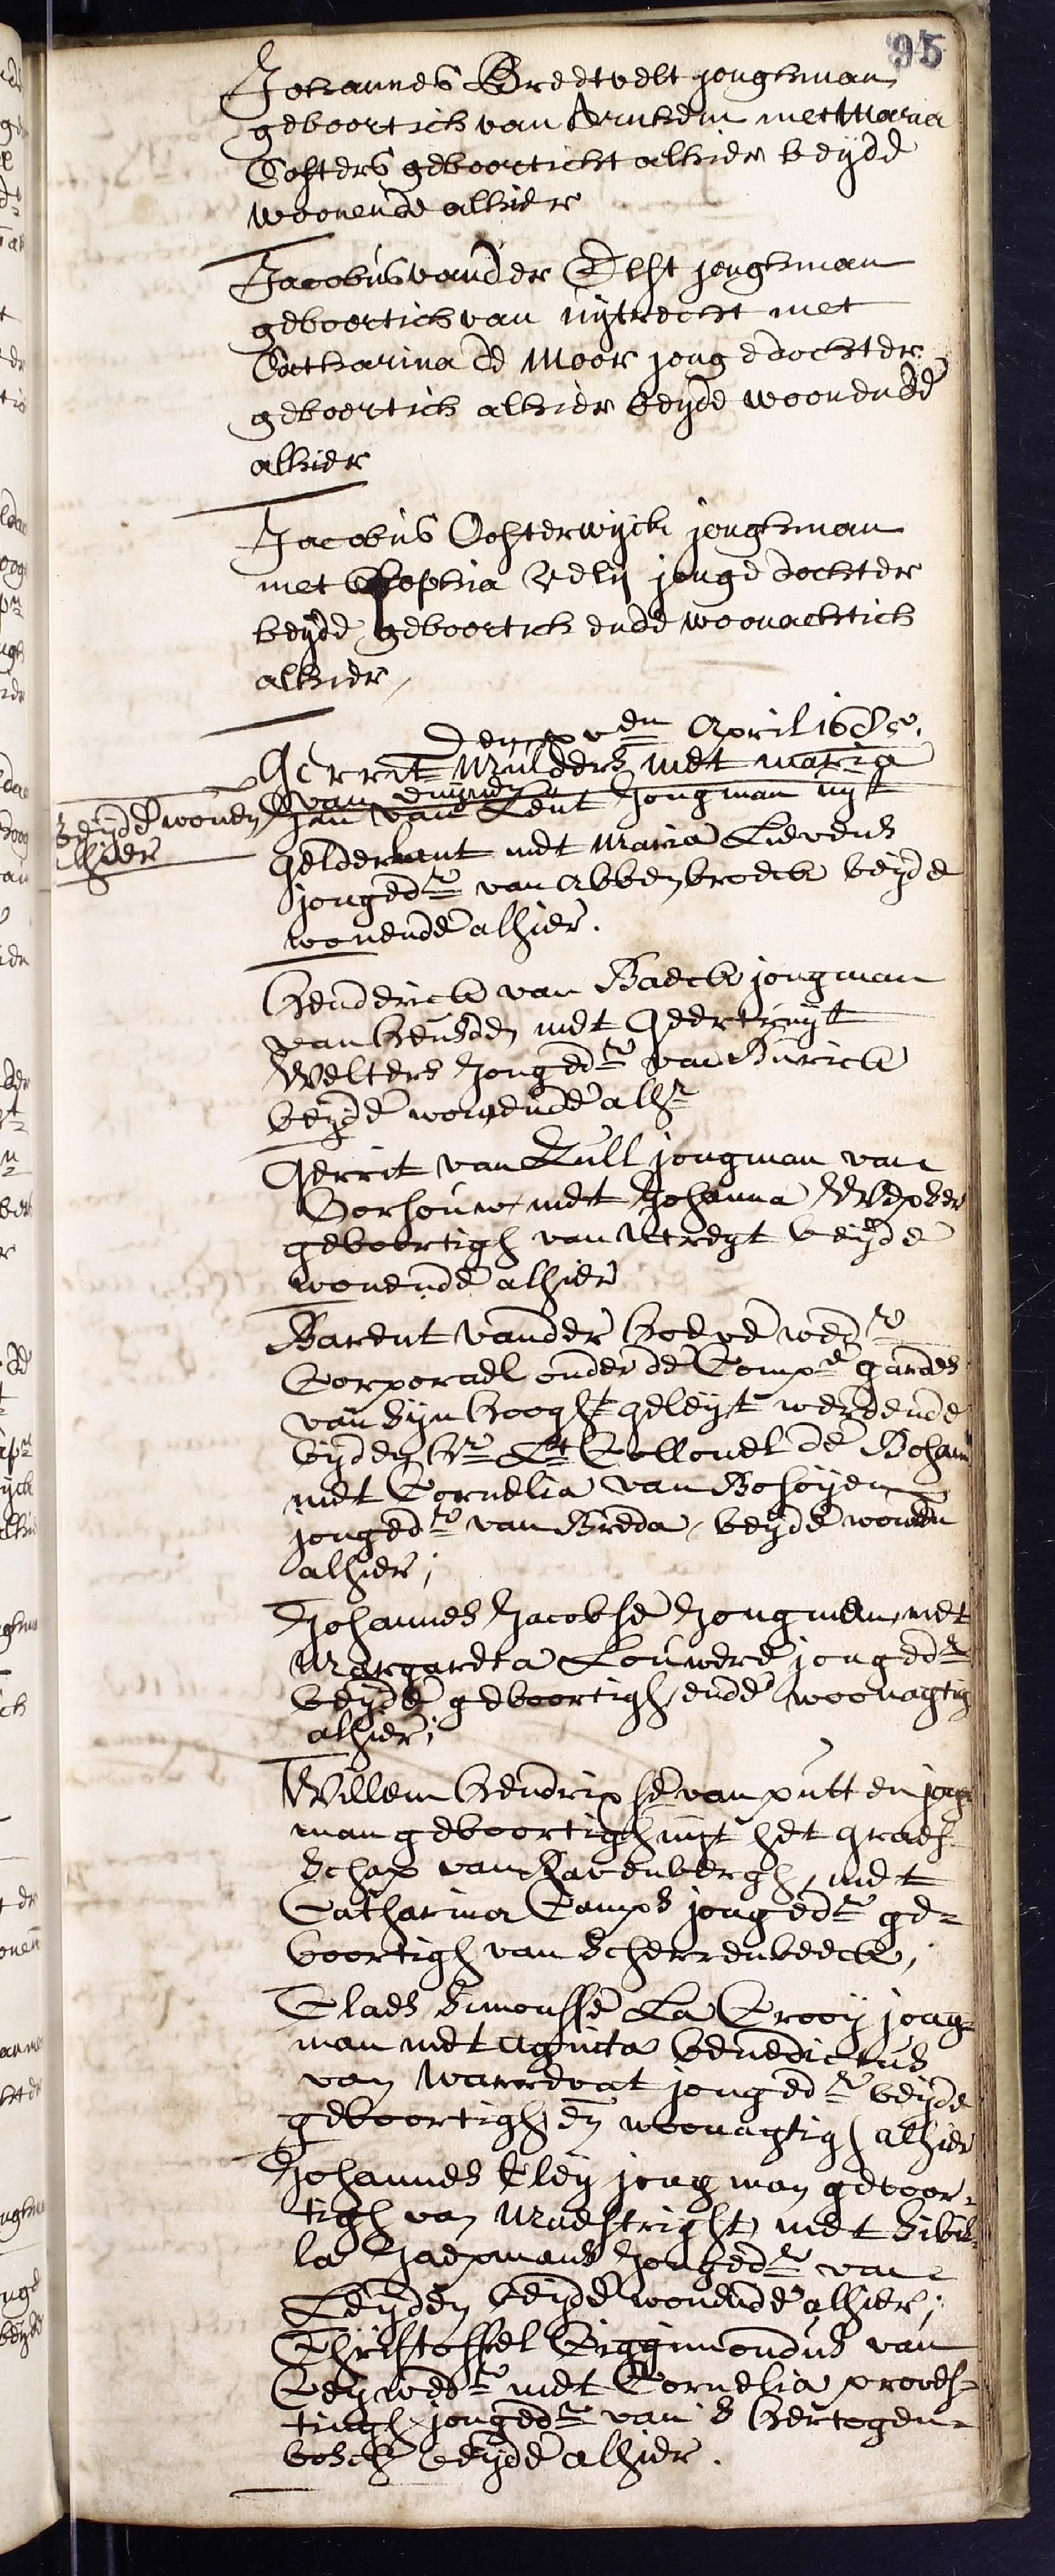 95
Johannes Bredtvelt jonghman
geboortich van Arnhem met Maria
Costers geboorticht alhier beijde
woonende alhier
Jacobus vander Elst jonghman
geboortich van uijtrecht met
Catharina de Moor jonge dochter
geboortich alhier beijde woonende
alhier
Jacobus Oosterwijck jonghman
met Sophia Velij jonge dochter
beijde geboortich ende woonachtich
alhier
Den xv en April 168
Gerrit Mulders met maria
van
beijde wonen
alhier
Jan van Lent Jongman uijt
gelderlant met Maria Lievens
jongedr van Abbenbroeck beijde
wonende alhier.
Hendrick van Baeck jongman
van heusden met Geertruijt
Welters Jongedr van Burick
beijde wonende alhr
Gerrit van Lull jongman van
met Johanna
geboortigh van Utregt beijde
wonende alhier
Barent vander Hoeve wedr
Corporael onder de Compe gardes
van Sijn Hooght geleijt werdende
bijden Hr Lt Collonel de
met Cornelia van Bohoijen
jongedr van Breda, beijde wonen
alhier;
Johannes Jacobse Jongman met
Margareta Louwere jongedr
beijde geboortigh ende woonagtig
alhier;
Willem Hendrixse van putten jong
man geboortigh uijt het graef
schap van Ravenbergh, met
Catharina Camps jongedr ge=
boortigh van Scherrenbeeck;
Claes Simonsse La Crooij jong=
man met Agnita benedictus
van jongedr beijde
geboortigh en woonagtigh alhier
Johannes Cleij jongman geboor=
tigh van Maestright met Sibil=
la Haexmans Jongedr van
Leijden beijde wonende alhier;
Christoffel Siggimondus van
wedr met Cornelia
tingh jongedr van s Hertogen=
bosch beijde alhier.